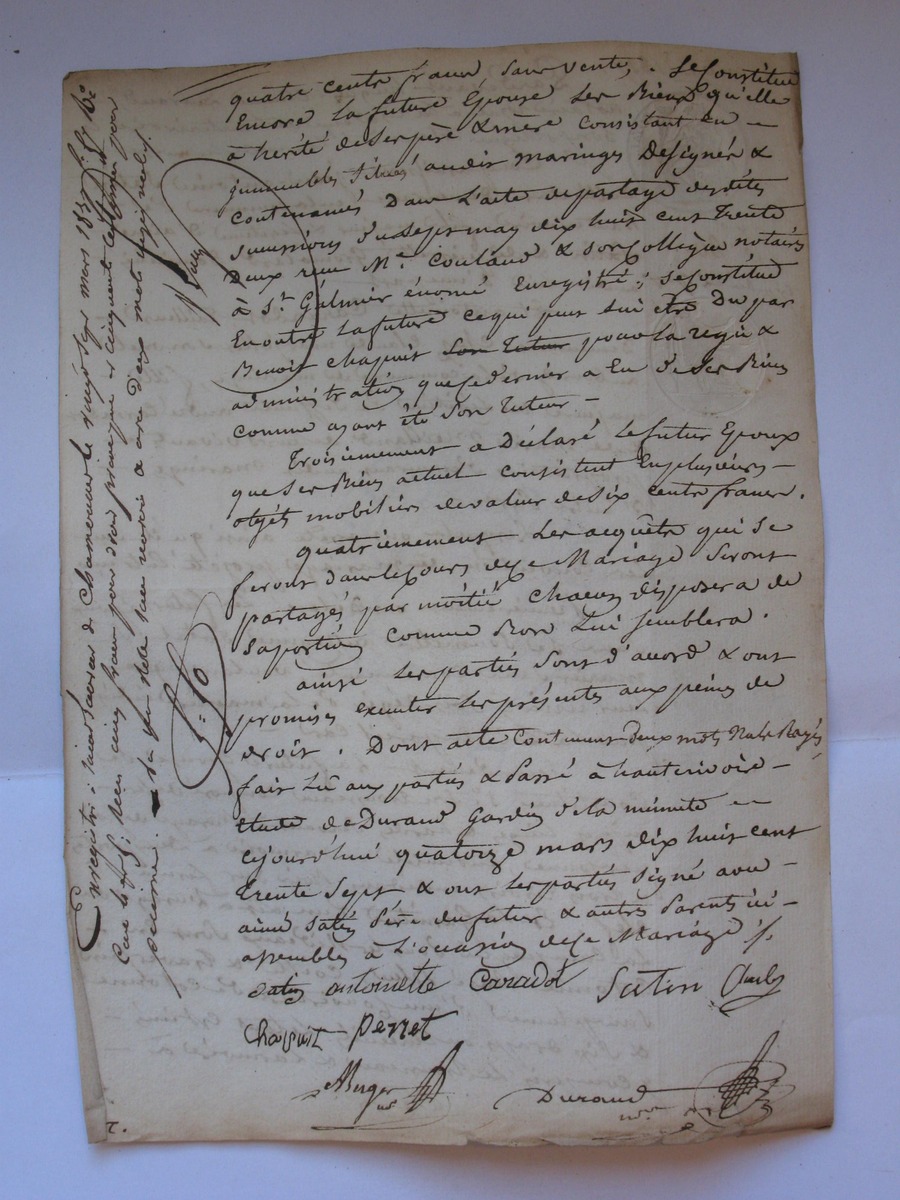 quatre cents francs, sans vente, . Se Constitue
Encore la future Epouse les Biens qu'elle
a hérité de ses père & mère consistant en —
immeubles Situés audit maringes Designés &
contenancés Dans l'acte de partage desdites
successions du sept may dix huit cent Trente
Deux reçu Me. Couland & son Collègue notaires
à St. Galmier énoncé Enregistré; se Constitue
En outre la future ce qui peut lui être Du par
Benoit Chapuit son Tuteur pour la régie &
administration que ce dernier a Eu de ses Biens
comme ayant été Son tuteur —
Troisiemement a Déclaré le futur Epoux
que Ses Biens actuel consistent En plusieurs —
objets mobiliers de valeur de six cents francs.
quatriemement les acquêts qui se
feront dans le cours de ce Mariage Seront
partagés par moitié chacun disposera de
sa portion comme Bon Lui Semblera.
ainsi les parties sont d'acord & ont
promises exécuter les présentes aux peines de
droit. Dont acte Contenant deux mots Nuls Rayés
fait Lû aux parties & Passé à hauterivoire —
Etude de Durand Gardien de la minute —
cejourd'hui quatorze mars dix huit cent
trente Sept & ont les parties Signé avec —
aimé Satin Père du futur & autres Parents ici —
assemblés à L'occasion de ce Mariage ./.
Satin antoinette Satin
Chapuit Perret
Durand
Enregistré à Saint Laurent de Chamousset le vingt sept mars 1837
cinq francs pour droit
décime.
deux mots